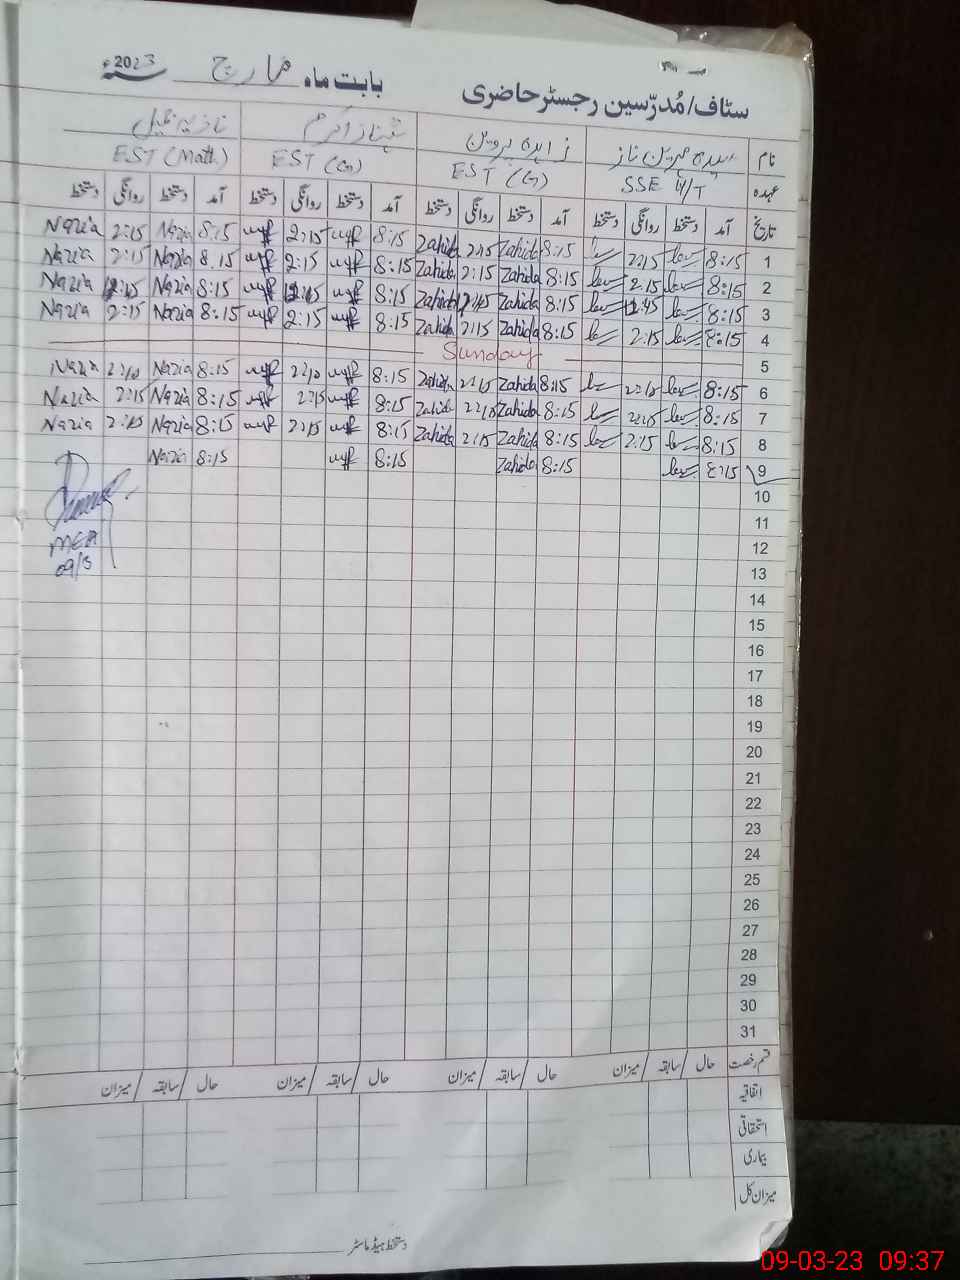 سٹاف/مُدرّسین رجسٹر حاضری بابت ماہ مارچ 2023ء
نام زاہدہ پروین شہناز اکرم نازیہ جمیل
عہدہ SSE H/T EST (G) EST (G) EST (Math)
تاریخ آمد دستخط روانگی دستخط آمد دستخط روانگی دستخط آمد دستخط روانگی دستخط آمد دستخط روانگی دستخط
1 8:15 2:15 8:15 Zahida 2:15 Zahida 8:15 2:15 8:15 Nazia 2:15 Nazia
2 8:15 2:15 8:15 Zahida 2:15 Zahida 8:15 2:15 8:15 Nazia 2:15 Nazia
3 8:15 12:45 8:15 Zahida 12:45 Zahida 8:15 12:45 8:15 Nazia 12:45 Nazia
4 8:15 2:15 8:15 Zahida 2:15 Zahida 8:15 2:15 8:15 Nazia 2:15 Nazia
5 Sunday
6 8:15 8:15 Zahida Zahida 8:15 8:15 Nazia Nazia
7 8:15 2:15 8:15 Zahida 2:15 Zahida 8:15 2:15 8:15 Nazia 2:15 Nazia
8 8:15 2:15 8:15 Zahida 2:15 Zahida 8:15 2:15 8:15 Nazia 2:15 Nazia
9 8:15 8:15 Zahida 8:15 8:15 Nazia
10
MEA
09/3
11
12
13
14
15
16
17
18
19
20
21
22
23
24
25
26
27
28
29
30
31
قسم رخصت حال / سابقہ / میزان حال / سابقہ / میزان حال / سابقہ / میزان حال / سابقہ / میزان
اتفاقیہ
استحقاقی
بیماری
میزان کل
دستخط ہیڈ ماسٹر
09-03-23 09:37